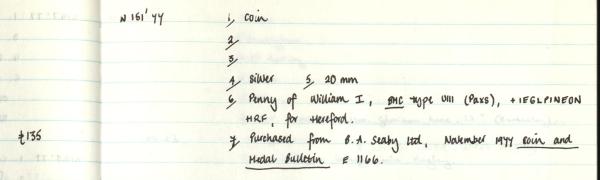 N 151' 77 1, Coin
2,
3,
4, Silver 5, 20 mm
6, Penny of William I, BMC type VIII (Paxs), +IEGLPINEON
HRF, for Hereford.
£135 7, Purchased from B.A. Seaby Ltd, November 1977 Coin and
Medal Bulletin E 1166.